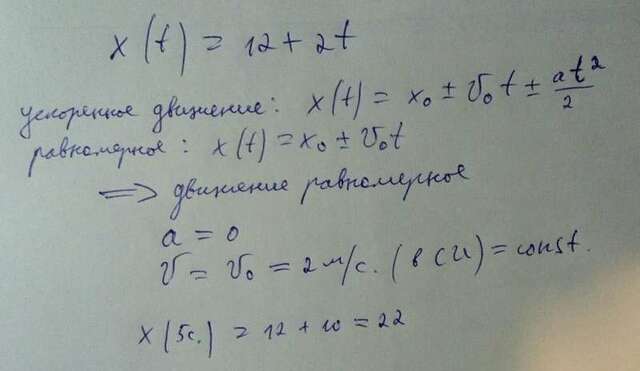 x(t) = 12 + 2t
ускоренное движение: x(t) = x₀ ± v₀t ± at²/2
равномерное: x(t) = x₀ ± v₀t
⟹ движение равномерное
a = 0
v = v₀ = 2 м/с. (в СИ) = const.
x(5с.) = 12 + 10 = 22